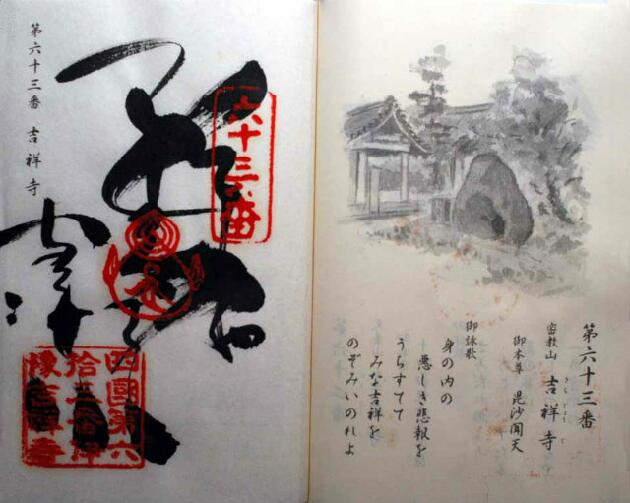 第六十三番
密教山 吉祥寺
きちじょうじ
御本尊 毘沙聞天
御詠歌
身の内の
悪しき悲報を
うちすてて
みな吉祥を
のぞみいのれよ
六十三番
四國第六
拾三番伊
豫吉祥寺
第六十三番 吉祥寺